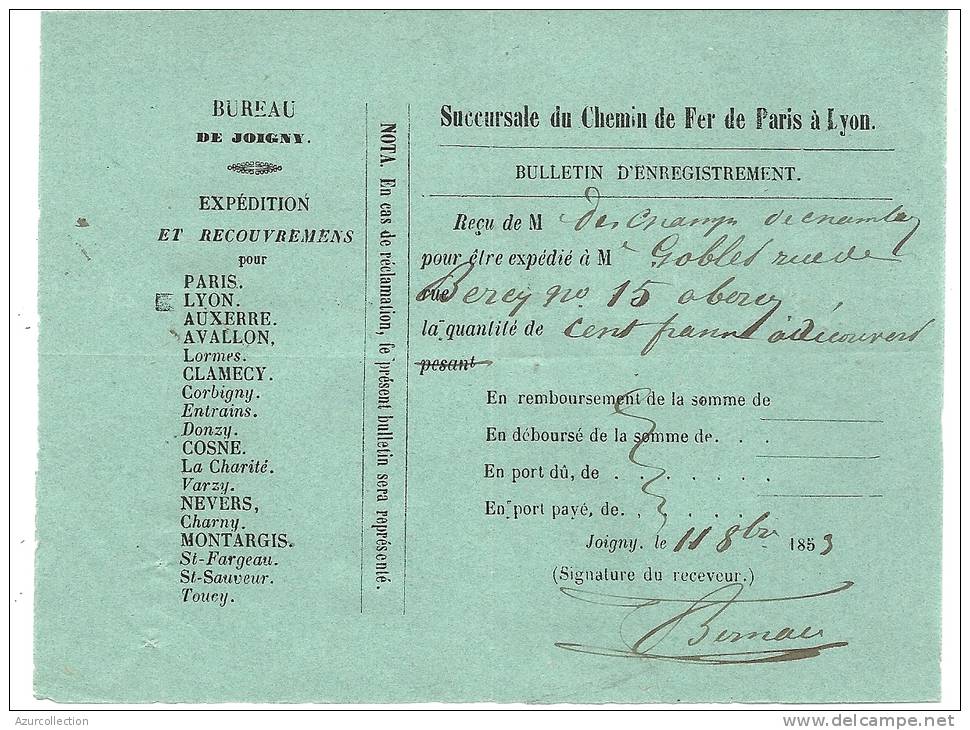 BUREAU
DE JOIGNY.
EXPÉDITION
ET RECOUVREMENS
pour
PARIS.
LYON.
AUXERRE.
AVALLON,
Lormes.
CLAMECY.
Corbigny.
Entrains.
Donzy.
COSNE.
La Charité.
Varzy.
NEVERS,
Charny.
MONTARGIS.
St-Fargeau.
St-Sauveur.
Toucy.
NOTA. En cas de réclamation, le présent bulletin sera représenté.
Succursale du Chemin de Fer de Paris à Lyon.
BULLETIN D'ENREGISTREMENT.
Reçu de M des champs de
pour être expédié à Mr Goblet rue de
rue Bercy no 15 a bercy
la quantité de cent franc a découvert
pesant
En remboursement de la somme de
En déboursé de la somme de. . .
En port dû, de . . . . . . . .
En port payé, de. . . . . . .
Joigny, le 11 8bre 1853
(Signature du receveur.)
Azurcollection
delcampe.net